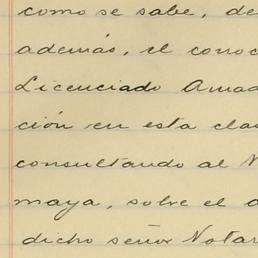 como se sabe, de
además, el conoc
Licenciado Amad
ción en esta clas
consultando al N
maya, sobre el a
dicho señor Notar